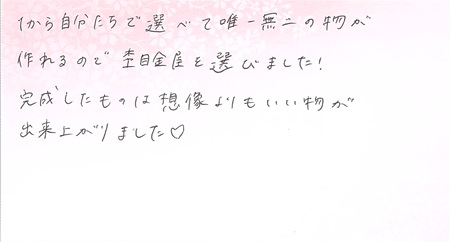 1から自分たちで選べて唯一無二の物が
作れるので杢目金屋を選びました!
完成したものは想像よりもいい物が
出来上がりました♡